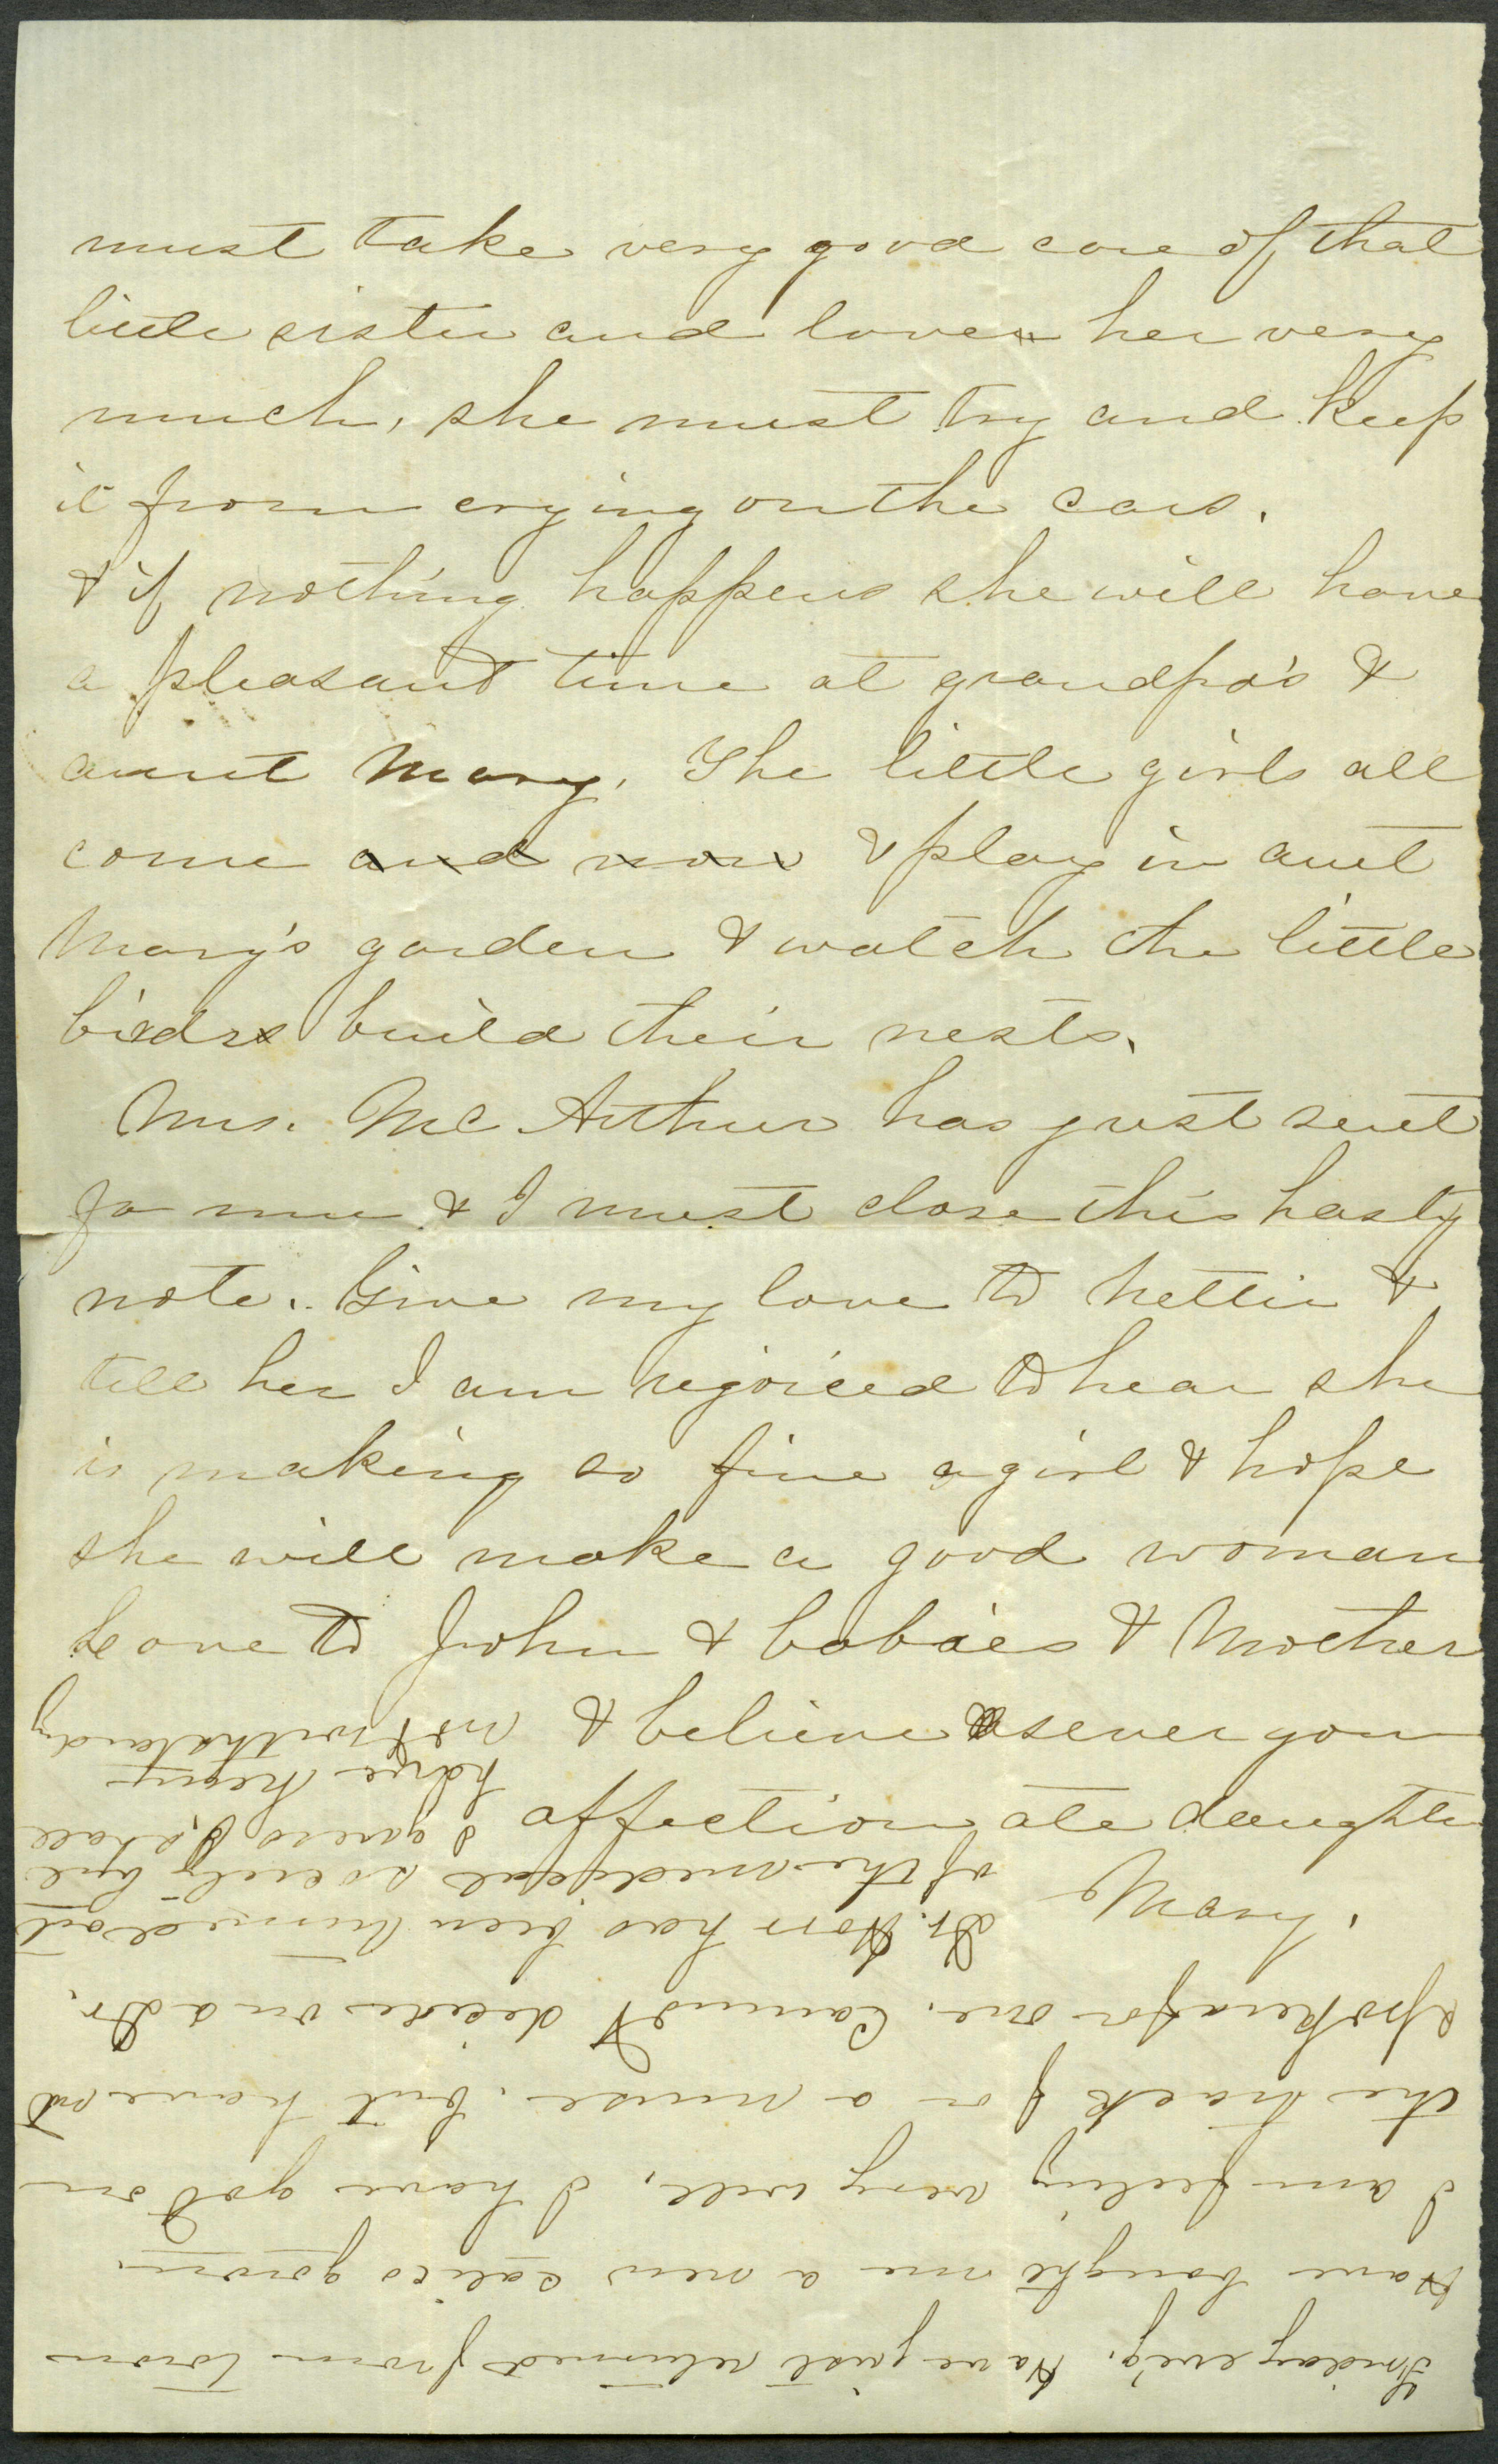 must take very good care of that
little sister and love her very
much, she must try and keep
it from crying on the cars.
& if nothing happens she will have
a pleasant time at grandpa's &
aunt Mary. The little girls all
come and now & play in aunt
Mary's garden & watch the little
birds build their nests.
Mrs. McArthur has just sent
for me & I must close this hasty
note. Give my love to Nettie &
tell her I am rejoiced to hear she
is making so fine a girl & hope
she will make a good woman
Love to John & babies & Mother
& believe as ever your
affectionate daughter
Mary.
Friday eve'g. Have just returned from town
Have bought me a new calico gown.
I am feeling very well, I have got on
the track for a nurse. but have not
spoken for one. Cannot decide on a Dr.
Dr. Horr has been turned out
of the medical society but
I guess I shall
have
notwithstanding